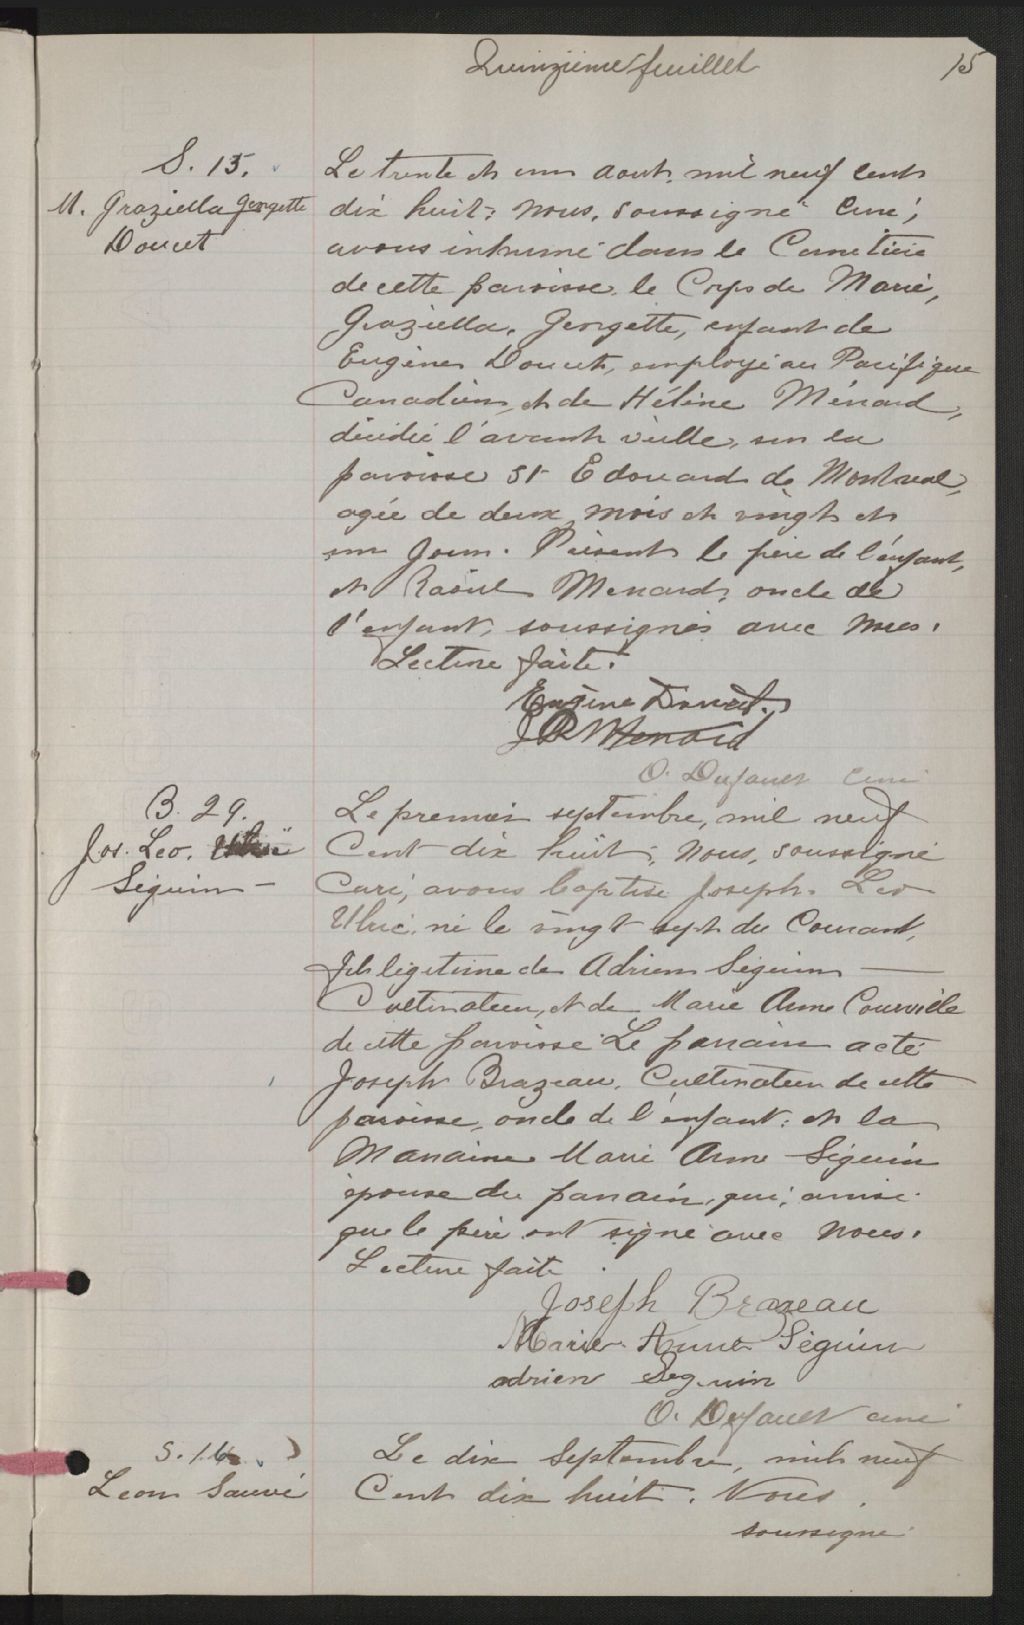 Quinzième feuillet
15
S. 15.
M. Graziella Georgette
Doucet
Le trente et un aout, mil neuf cent
dix huit, nous, soussigné curé,
avons inhumé dans le Cimetière
de cette paroisse le Corps de Marie,
Graziella, Georgette, enfant de
Eugène Doucet, employé au Pacifique
Canadien, et de Hélène Ménard,
décédée l'avant veille, sur la
paroisse St Edouard de Montreal,
agée de deux mois et vingt et
un Jours. Présents le père de l'enfant,
et Raoul Menard, oncle de
l'enfant, soussignés avec nous.
Lecture faite.
Eugène Doucet.
J R Menard
O. Dufault curé
B. 29.
Jos. Leo. Ulric
Séguin —
Le premier septembre, mil neuf
Cent dix huit, Nous, soussigné
Curé, avons baptisé Joseph. Leo
Ulric, né le vingt sept du Courant,
fils légitime de Adrien Séguin —
Cultivateur, et de Marie Anne Courville
de cette paroisse. Le parrain a été
Joseph Brazeau, Cultivateur de cette
paroisse, oncle de l'enfant, et la
Marraine Marie Anne Séguin
épouse du parrain, qui, ainsi
que le père ont signé avec nous.
Lecture faite.
Joseph Brazeau
Marie Anne Séguin
adrien Seguin
O. Dufault curé
S. 16.
Leon Sauvé
Le dix Septembre, mil neuf
Cent dix huit. Nous
soussigné